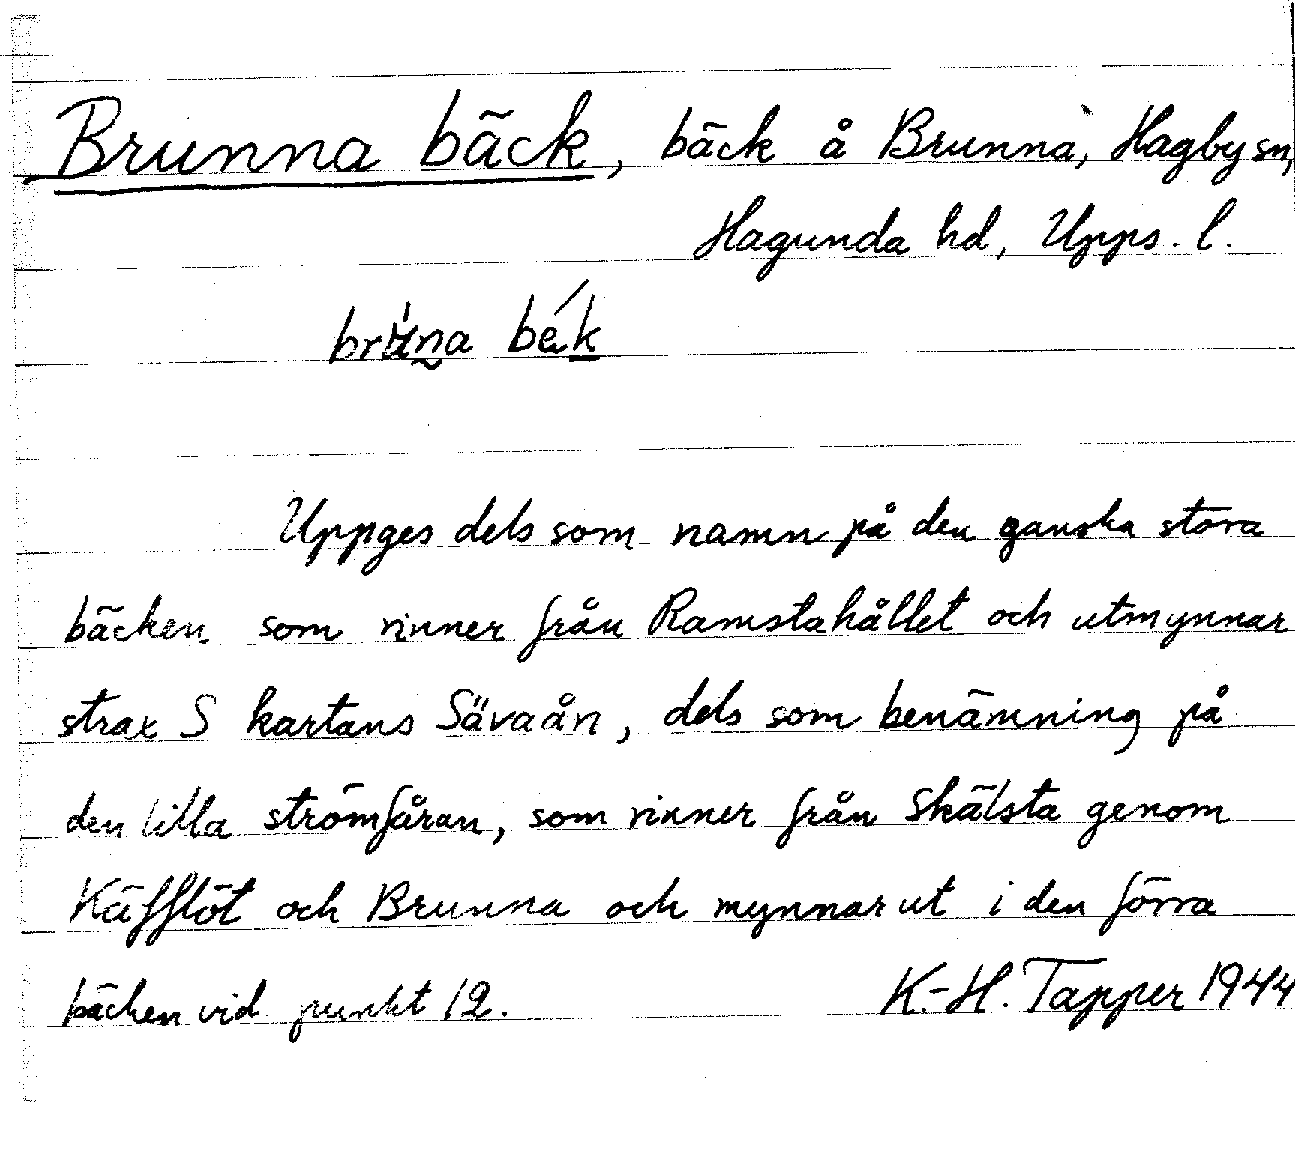 Brunna bäck, bäck å Brunna, Hagby sn,
Hagunda hd, Upps. l.
Uppges dels som namn på den ganska stora
bäcken som rinner från Ramstahållet och utmynnar
strax S kartans Sävaån, dels som benämning på
den lilla strömfåran, som rinner från Skälsta genom
Käfflöt och Brunna och mynnar ut i den förra
bäcken vid punkt 12. K.-H. Tapper 1944